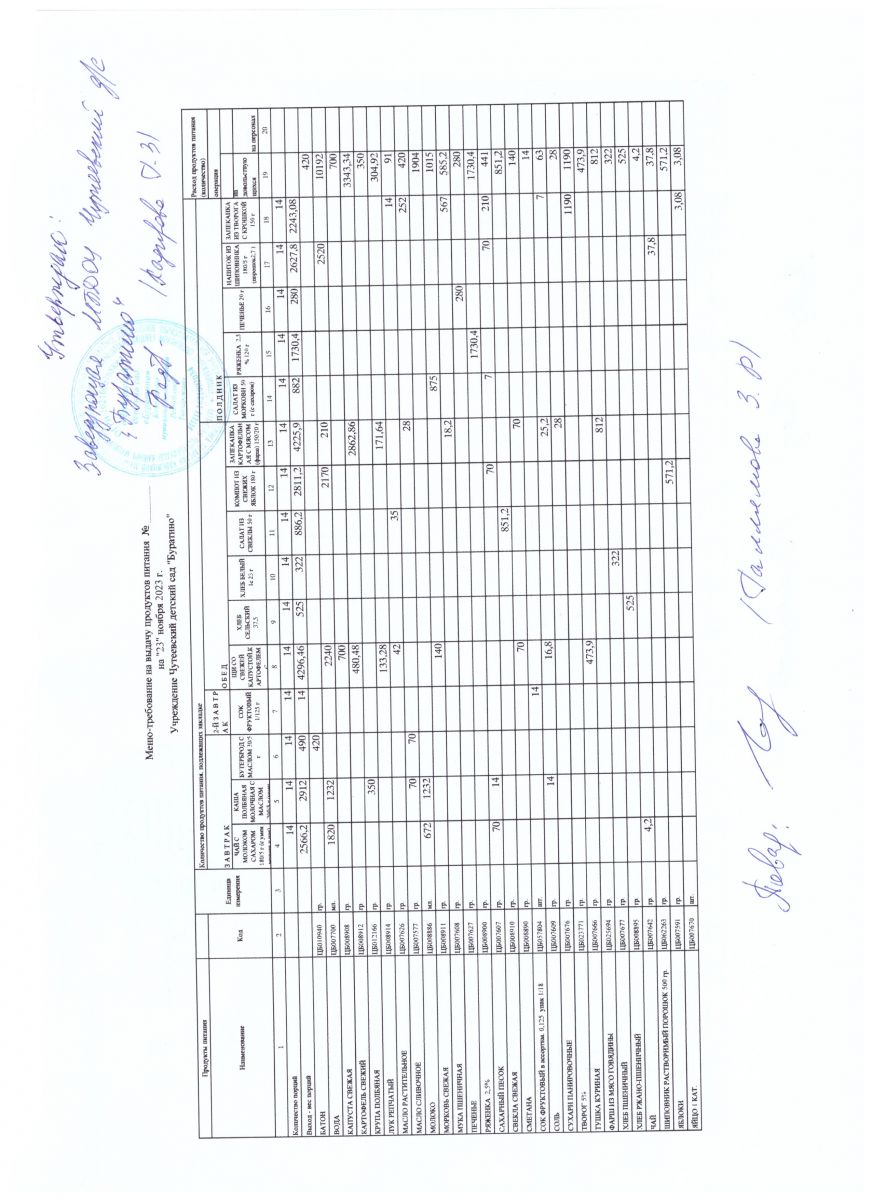 Утверждаю:
Заведующая МБДОУ Чутеевский д/с
"Буратино"
Кадырова Л.З/
Меню-требование на выдачу продуктов питания №
на "23" ноября 2023 г.
Учреждение Чутеевский детский сад "Буратино"
Продукты питания Код Единица измерения Количество продуктов питания, подлежащих закладке Расход продуктов питания (количество)
З А В Т Р А К 2-Й З А В Т Р А К О Б Е Д П О Л Д Н И К операция
Наименование ЧАЙ С МОЛОКОМ САХАРОМ 180/5 г КАША ПОЛБЯНАЯ МОЛОЧНАЯ С МАСЛОМ БУТЕРБРОД С МАСЛОМ 30/5 г СОК ФРУКТОВЫЙ 1/125 г ЩИ СО СВЕЖЕЙ КАПУСТОЙ К АРТОФЕЛЕМ ХЛЕБ СЕЛЬСКИЙ 37,5 ХЛЕБ БЕЛЫЙ 1с 23 г САЛАТ ИЗ СВЕКЛЫ 50 г КОМПОТ ИЗ СВЕЖИХ ЯБЛОК 180 г ЗАПЕКАНКА КАРТОФЕЛЬН АЯ С МЯСОМ (фарш) 150/20 г САЛАТ ИЗ МОРКОВИ 50 г (с сахаром) РЯЖЕНКА 2,5 % 120 г ПЕЧЕНЬЕ 20 г НАПИТОК ИЗ ШИПОВНИКА 180/5 г (порошок2,7 г ЗАПЕКАНКА ИЗ ТВОРОГА С КРОШКОЙ 150 г на довольствую щихся на персонал
1 2 3 4 5 6 7 8 9 10 11 12 13 14 15 16 17 18 19 20
Количество порций 14 14 14 14 14 14 14 14 14 14 14 14 14 14 14
Выход - вес порций 2566,2 2912 490 14 4296,46 525 322 886,2 2811,2 4225,9 882 1730,4 280 2627,8 2243,08
БАТОН ЦБ010940 гр. 420 420
ВОДА ЦБ007700 мл. 1820 1232 2240 2170 210 2520 10192
КАПУСТА СВЕЖАЯ ЦБ008908 гр. 700 700
КАРТОФЕЛЬ СВЕЖИЙ ЦБ008912 гр. 480,48 2862,86 3343,34
КРУПА ПОЛБЯНАЯ ЦБ012166 гр. 350 350
ЛУК РЕПЧАТЫЙ ЦБ008914 гр. 133,28 171,64 304,92
МАСЛО РАСТИТЕЛЬНОЕ ЦБ007626 гр. 42 35 14 91
МАСЛО СЛИВОЧНОЕ ЦБ007577 гр. 70 70 28 252 420
МОЛОКО ЦБ008886 мл. 672 1232 1904
МОРКОВЬ СВЕЖАЯ ЦБ008911 гр. 140 875 1015
МУКА ПШЕНИЧНАЯ ЦБ007608 гр. 18,2 567 585,2
ПЕЧЕНЬЕ ЦБ007627 гр. 280 280
РЯЖЕНКА 2,5% ЦБ008900 гр. 1730,4 1730,4
САХАРНЫЙ ПЕСОК ЦБ007607 гр. 70 14 70 7 70 210 441
СВЕКЛА СВЕЖАЯ ЦБ008910 гр. 851,2 851,2
СМЕТАНА ЦБ008890 гр. 70 70 140
СОК ФРУКТОВЫЙ в ассортим. 0,125 упак 1/18 ЦБ057804 шт. 14 14
СОЛЬ ЦБ007609 гр. 14 16,8 25,2 7 63
СУХАРИ ПАНИРОВОЧНЫЕ ЦБ007676 гр. 28 28
ТВОРОГ 5% ЦБ023771 гр. 1190 1190
ТУШКА КУРИНАЯ ЦБ007666 гр. 473,9 473,9
ФАРШ ИЗ МЯСО ГОВЯДИНЫ ЦБ025694 гр. 812 812
ХЛЕБ ПШЕНИЧНЫЙ ЦБ007677 гр. 322 322
ХЛЕБ РЖАНО-ПШЕНИЧНЫЙ ЦБ008895 гр. 525 525
ЧАЙ ЦБ007642 гр. 4,2 4,2
ШИПОВНИК РАСТВОРИМЫЙ ПОРОШОК 500 гр. ЦБ062263 гр. 37,8 37,8
ЯБЛОКИ ЦБ007591 гр. 571,2 571,2
ЯЙЦО 1 КАТ. ЦБ007670 шт. 3,08 3,08
Повар: /Галлямова З. Р/